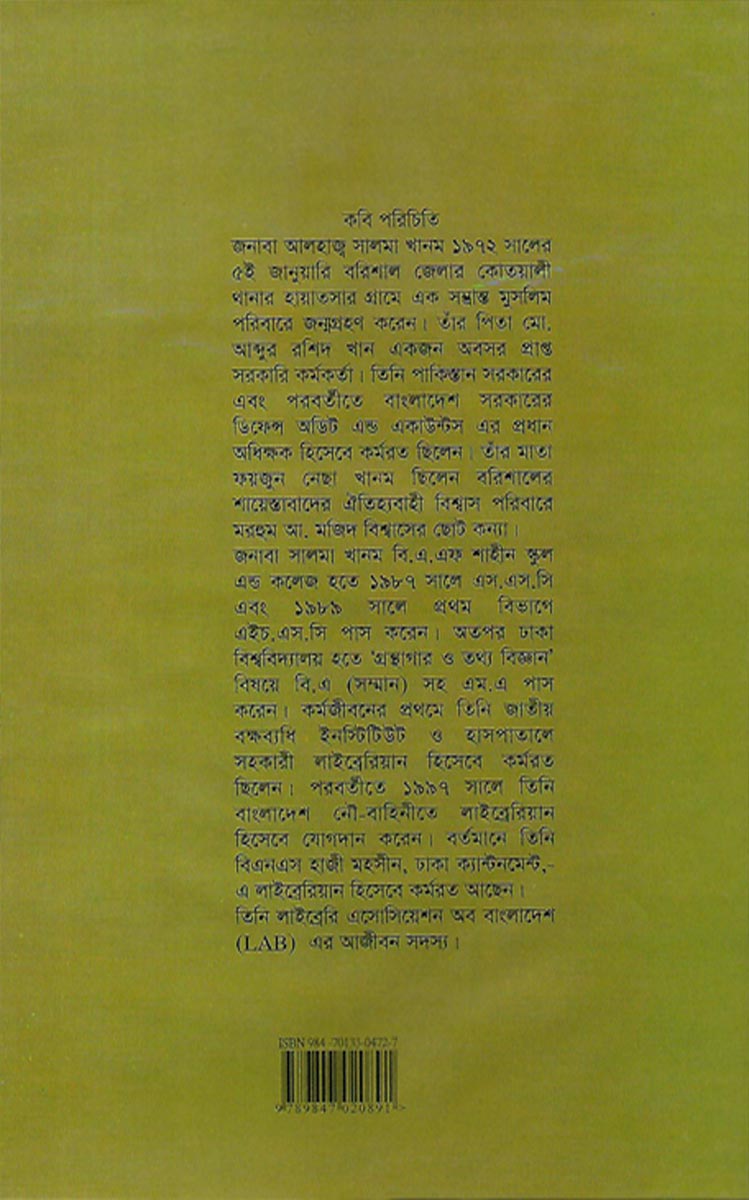 কবি পরিচিতি
জনাবা আলহাজ্ব সালমা খানম ১৯৭২ সালের
৫ই জানুয়ারি বরিশাল জেলার কোতয়ালী
থানার হায়াতসার গ্রামে এক সম্ভ্রান্ত মুসলিম
পরিবারে জন্মগ্রহণ করেন। তাঁর পিতা মো.
আব্দুর রশিদ খান একজন অবসর প্রাপ্ত
সরকারি কর্মকর্তা। তিনি পাকিস্তান সরকারের
এবং পরবর্তীতে বাংলাদেশ সরকারের
ডিফেন্স অডিট এন্ড একাউন্টস এর প্রধান
অধিক্ষক হিসেবে কর্মরত ছিলেন। তাঁর মাতা
ফয়জুন নেছা খানম ছিলেন বরিশালের
শায়েস্তাবাদের ঐতিহ্যবাহী বিশ্বাস পরিবারে
মরহুম আ. মজিদ বিশ্বাসের ছোট কন্যা।
জনাবা সালমা খানম বি.এ.এফ শাহীন স্কুল
এন্ড কলেজ হতে ১৯৮৭ সালে এস.এস.সি
এবং ১৯৮৯ সালে প্রথম বিভাগে
এইচ.এস.সি পাস করেন। অতপর ঢাকা
বিশ্ববিদ্যালয় হতে ‘গ্রন্থাগার ও তথ্য বিজ্ঞান’
বিষয়ে বি.এ (সম্মান) সহ এম.এ পাস
করেন। কর্মজীবনের প্রথমে তিনি জাতীয়
বক্ষব্যধি ইনস্টিটিউট ও হাসপাতালে
সহকারী লাইব্রেরিয়ান হিসেবে কর্মরত
ছিলেন। পরবর্তীতে ১৯৯৭ সালে তিনি
বাংলাদেশ নৌ-বাহিনীতে লাইব্রেরিয়ান
হিসেবে যোগদান করেন। বর্তমানে তিনি
বিএনএস হাজী মহসীন, ঢাকা ক্যান্টনমেন্ট,-
এ লাইব্রেরিয়ান হিসেবে কর্মরত আছেন।
তিনি লাইব্রেরি এসোসিয়েশন অব বাংলাদেশ
(LAB) এর আজীবন সদস্য।
ISBN 984-70133-0472-7
9 789847 020891 >